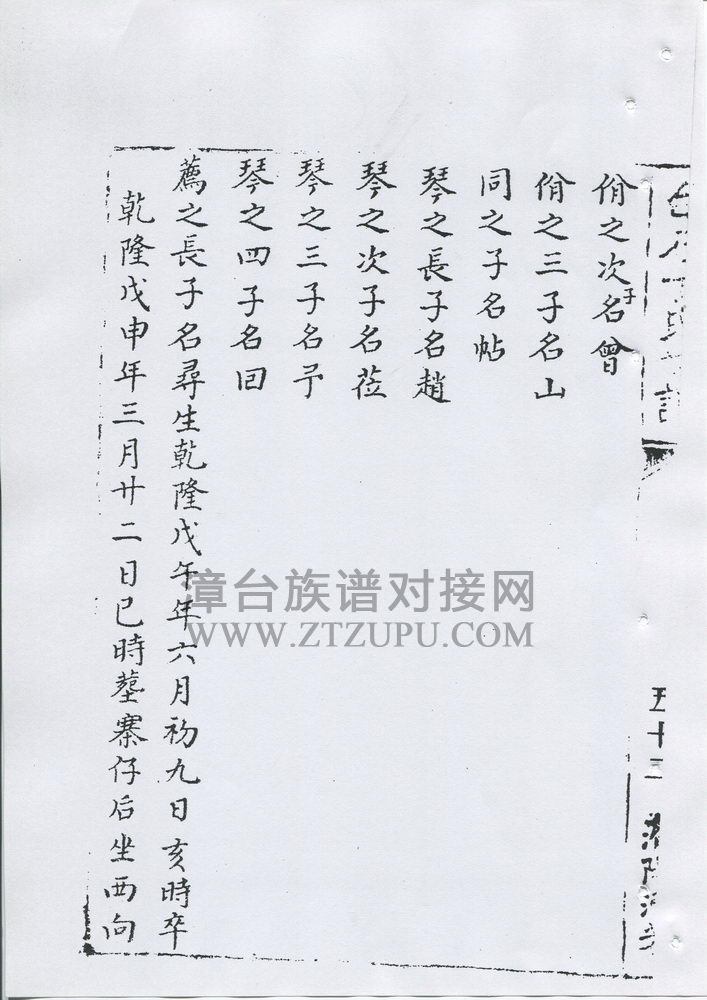 佾之次子名曾
佾之三子名山
同之子名帖
琴之長子名趙
琴之次子名莅
琴之三子名予
琴之四子名回
薦之長子名尋生乾隆戊午年六月初九日亥時卒
乾隆戊申年三月廿二日巳時墓寨仔后坐西向
五十三
漳台族谱对接网
WWW.ZTZUPU.COM